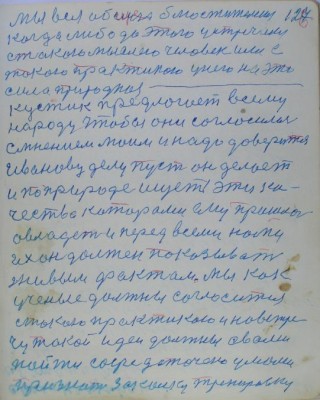 127
мы вся общая
когда либо до этого устречии
с такою мыслю человек или с
такою практикою у него на это
сила природная
кустик предлогоет всему
народу чтобы они согласилсь
с мнением моим и надо доверить
Иванову делу пуст он делает
и по природе ищет эти ка-
чества которами ему пришлось
овладет и перед всеми нами
их он должен показывать
живым фактам. мы как
ученые должны согласится
с такою практикою и навстре
чу такой идеи должны
пойти сосредоточено умами
признать закалку тренировку